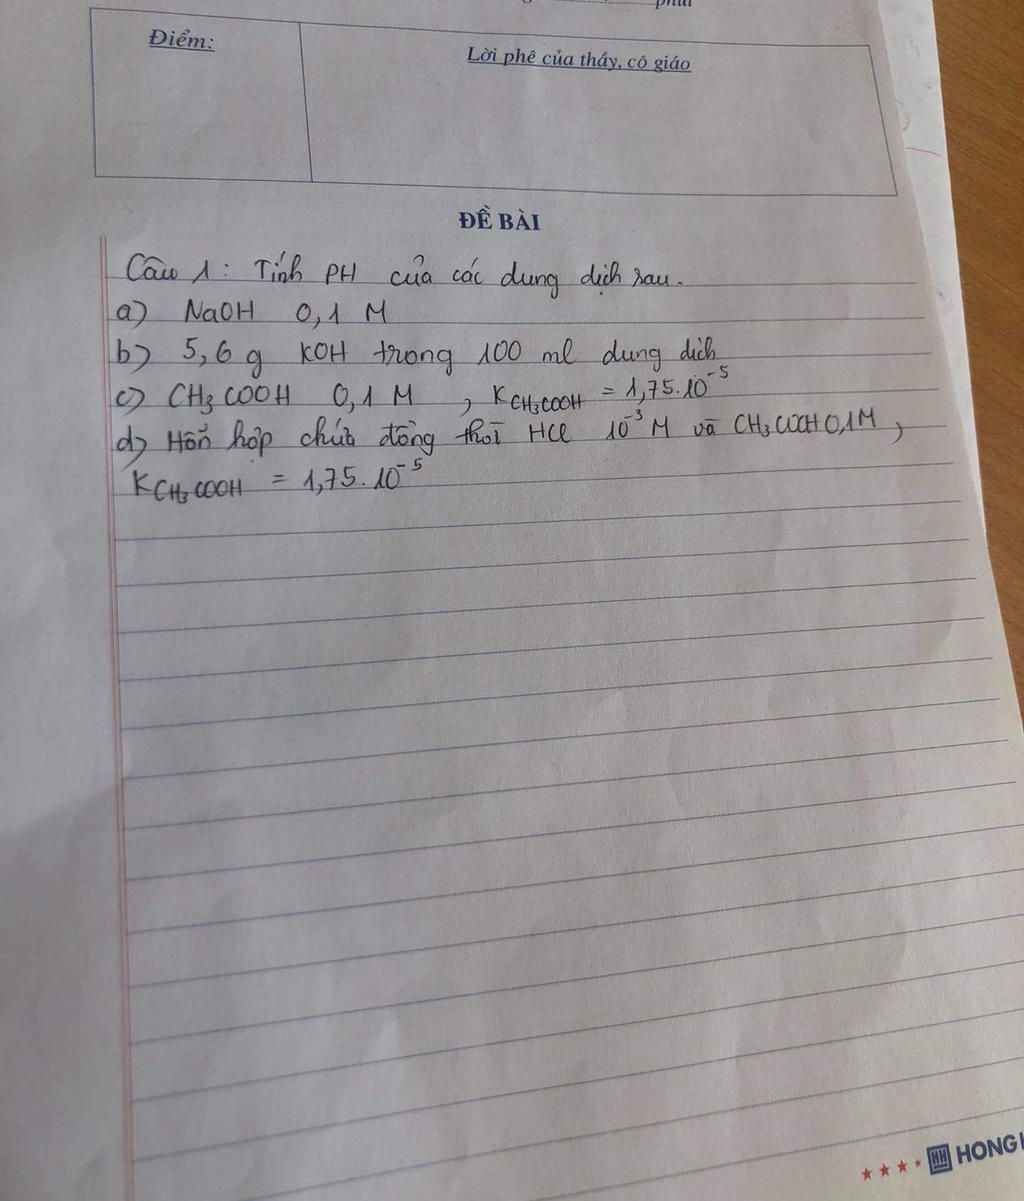 phút
Điểm:
Lời phê của thầy, cô giáo
ĐỀ BÀI
Câu 1: Tính PH của các dung dịch sau.
a) NaOH 0,1 M
b) 5,6 g KOH trong 100 ml dung dich
c) CH₃COOH 0,1 M , K_CH₃COOH = 1,75.10⁻⁵
d) Hỗn hợp chứa đồng thời HCl 10⁻³ M và CH₃COOH 0,1M ,
K_CH₃COOH = 1,75.10⁻⁵
HONG